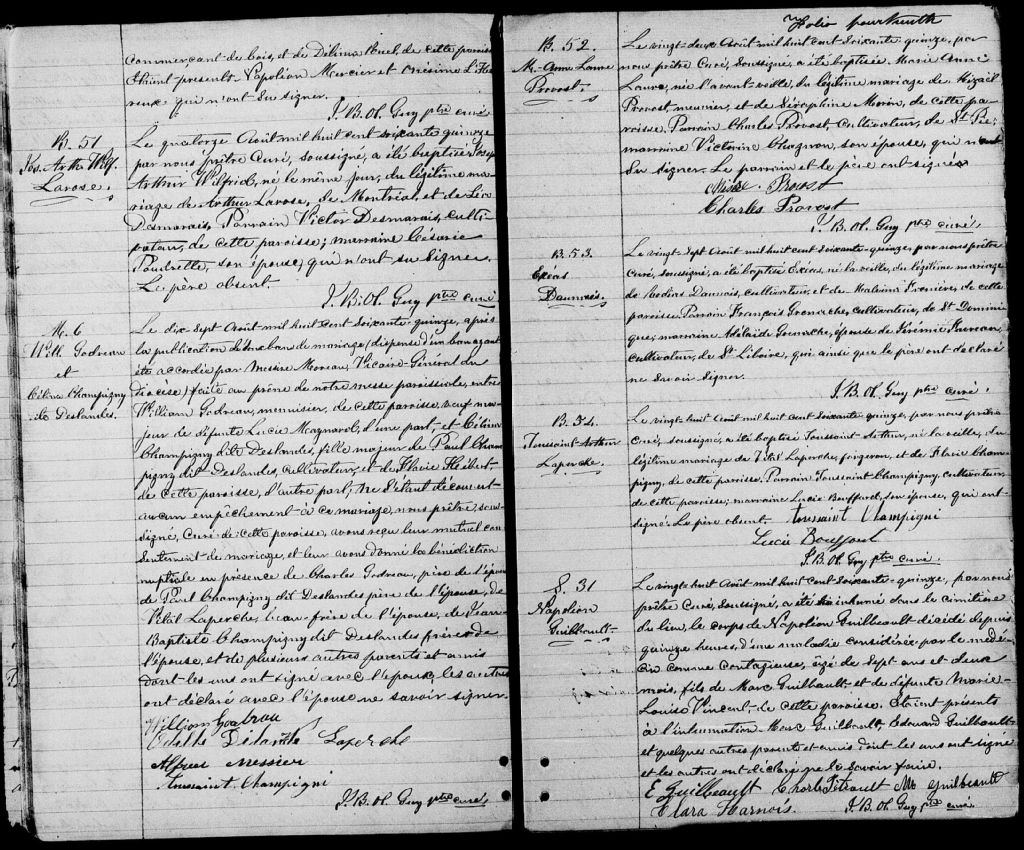 commerçant de bois, et de Délima Ruel, de cette paroisse
étaient présents Napoléon Mercier et Onésime L'Heu-
reux qui n'ont su signer.
J. B. Ol. Guy ptre curé
B. 51
Jos. Arthr Wilf.
Larose.
Le quatorze Août mil huit cent soixante quinze
par nous prêtre Curé, soussigné, a été baptisé Joseph
Arthur Wilfrid, né le même jour, du légitime ma-
riage de Arthur Larose, de Montréal, et de Léa
Desmarais, Parrain Victor Desmarais, culti-
vateur, de cette paroisse; marraine Césarie
Poudrette, son épouse, qui n'ont su signer.
Le père absent.
J. B. Ol. Guy ptre curé
M. 6
Wm Godreau
et
Célina Champigny
dit Deslandes.
Le dix sept Août mil huit cent soixante quinze, après
la publication d'un ban de mariage (dispense d'un ban ayant
été accordée par Messire Moreau, Vicaire Général du
diocèse) faite au prône de notre messe paroissiale, entre
William Godreau, menuisier, de cette paroisse, veuf ma-
jeur de défunte Lucie Magnarel, d'une part, et Célina
Champigny dit Deslandes, fille majeur de Paul Cham-
pigny dit Deslandes, cultivateur, et de Flavie Hébert
de cette paroisse, d'autre part; ne s'étant découvert
aucun empêchement à ce mariage, nous prêtre, sous-
signé, Curé de cette paroisse, avons reçu leur mutuel con-
sentement de mariage, et leur avons donné la bénédiction
nuptiale en présence de Charles Godreau, père de l'époux
de Paul Champigny dit Deslandes père de l'épouse, de
Vital Laperche, beau-frère de l'épouse, de Jean
Baptiste Champigny dit Deslandes frère de
l'épouse, et de plusieurs autres parents et amis
dont les uns ont signé avec l'époux, les autres
ont déclaré avec l'épouse ne savoir signer.
William Godreau
Laperche
Alfred Messier
Toussaint Champigni
J. B. Ol. Guy ptre curé
Folio quatorzième
B. 52.
M.-Anne Laura
Provost.
Le vingt-deux Août mil huit cent soixante-quinze, par
nous prêtre Curé, soussigné, a été baptisée Marie Anne
Laura, née l'avant-veille, du légitime mariage de Mizaël
Provost meunier, et de Séraphine Morin, de cette pa-
roisse. Parrain Charles Provost, cultivateur, de St Pie;
marraine Victorine Chagnon, son épouse, qui n'ont
su signer. Le parrain et le père ont signés
Provost
Charles Provost
J. B. Ol. Guy ptre curé.
B. 53.
Exéas
Daunais.
Le vingt sept Août mil huit cent soixante-quinze, par nous prêtre
Curé, soussigné, a été baptisé Exéas, né la veille, du légitime mariage
de Daunais, cultivateur, et de Malvina Frenière, de cette
paroisse. Parrain François Grenache, cultivateur, de St Domini-
que; marraine Adélaïde Grenache, épouse de Jérémie
cultivateur, de St Liboire, qui ainsi que le père ont déclaré
ne savoir signer.
J. B. Ol. Guy ptre curé.
B. 54.
Toussaint-Arthur
Laperche.
Le vingt-huit Août mil huit cent soixante-quinze, par nous prêtre
Curé, soussigné, a été baptisé Toussaint-Arthur, né la veille, du
légitime mariage de Vital Laperche, forgeron, et de Flavie Cham-
pigny, de cette paroisse. Parrain Toussaint Champigny, cultivateur
de cette paroisse; marraine Lucie Bouffard, son épouse, qui ont
signé. Le père absent. Toussaint Champigni
Lucie Bouffard
J. B. Ol. Guy ptre curé.
S. 31
Napoléon
Guilbault
Le vingt-huit Août mil huit cent soixante-quinze, par nous
prêtre Curé, soussigné, a été inhumé dans le cimitière
du lieu, le corps de Napoléon Guilbault décédé depuis
quinze heures, d'une maladie considérée par le méde-
cin comme contagieuse, âgé de sept ans et deux
mois, fils de Marc Guilbault et de défunte Marie-
Louise Vincent de cette paroisse. Etaient présents
à l'inhumation Marc Guilbault, Edouard Guilbault
et quelques autres parents et amis dont les uns ont signé
et les autres ont déclaré ne le savoir faire.
E Guilbeault Charle Tétrault M Guilbeault
Clara Harnois. J. B. Ol. Guy ptre curé